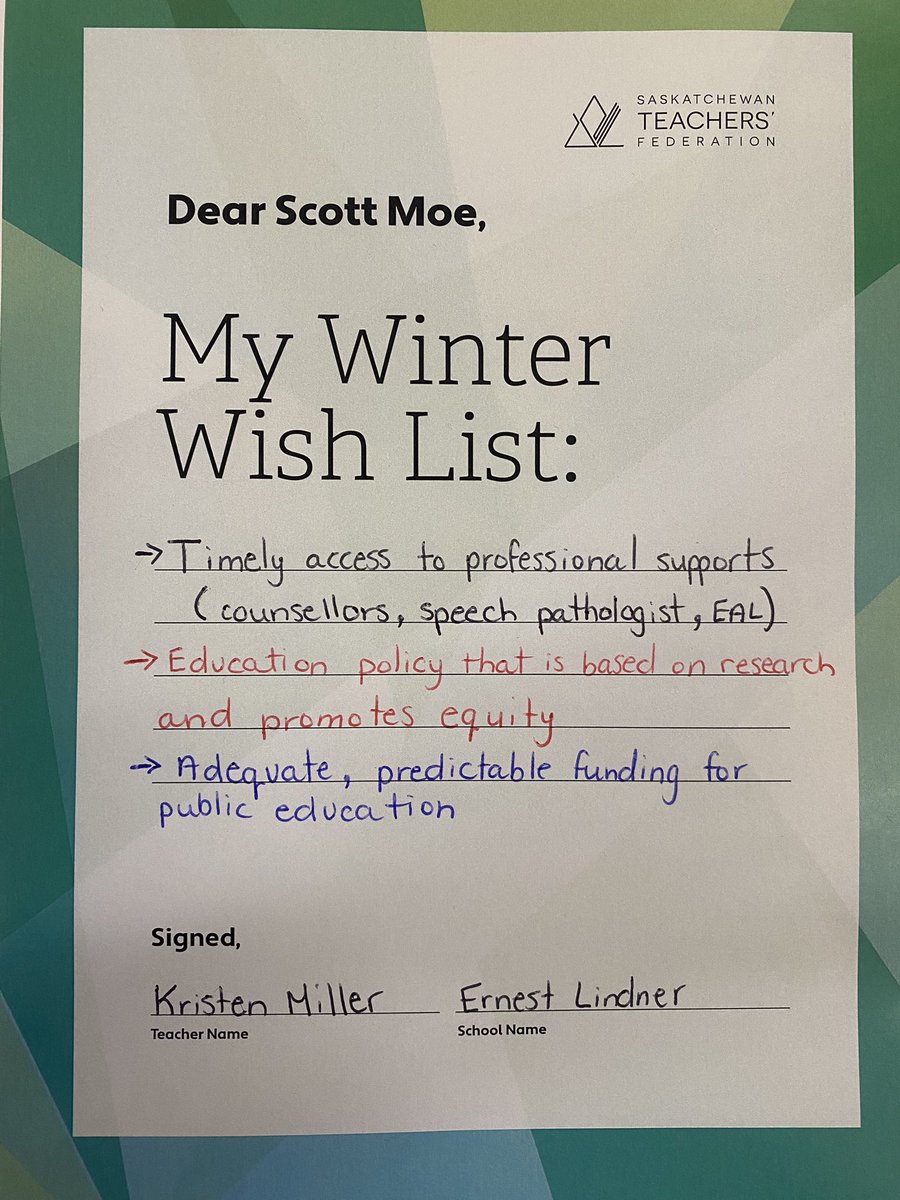 SASKATCHEWAN
TEACHERS'
FEDERATION
Dear Scott Moe,
My Winter
Wish List:
→ Timely access to professional supports
(counsellors, speech pathologist, EAL)
→ Education policy that is based on research
and promotes equity
→ Adequate, predictable funding for
public education
Signed,
Kristen Miller Ernest Lindner
Teacher Name School Name